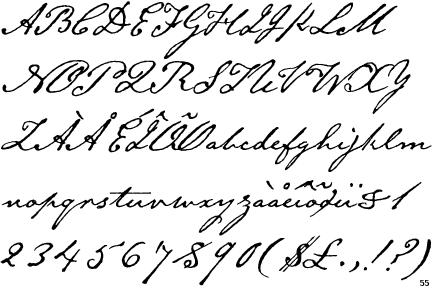 ABCDEFGHIJKLM
NOPQRSTUVWXY
ZÀÅÉÎÕØabcdefghijklm
nopqrstuvwxyzàåéîõøü&1
234567890($£.,!?)
55